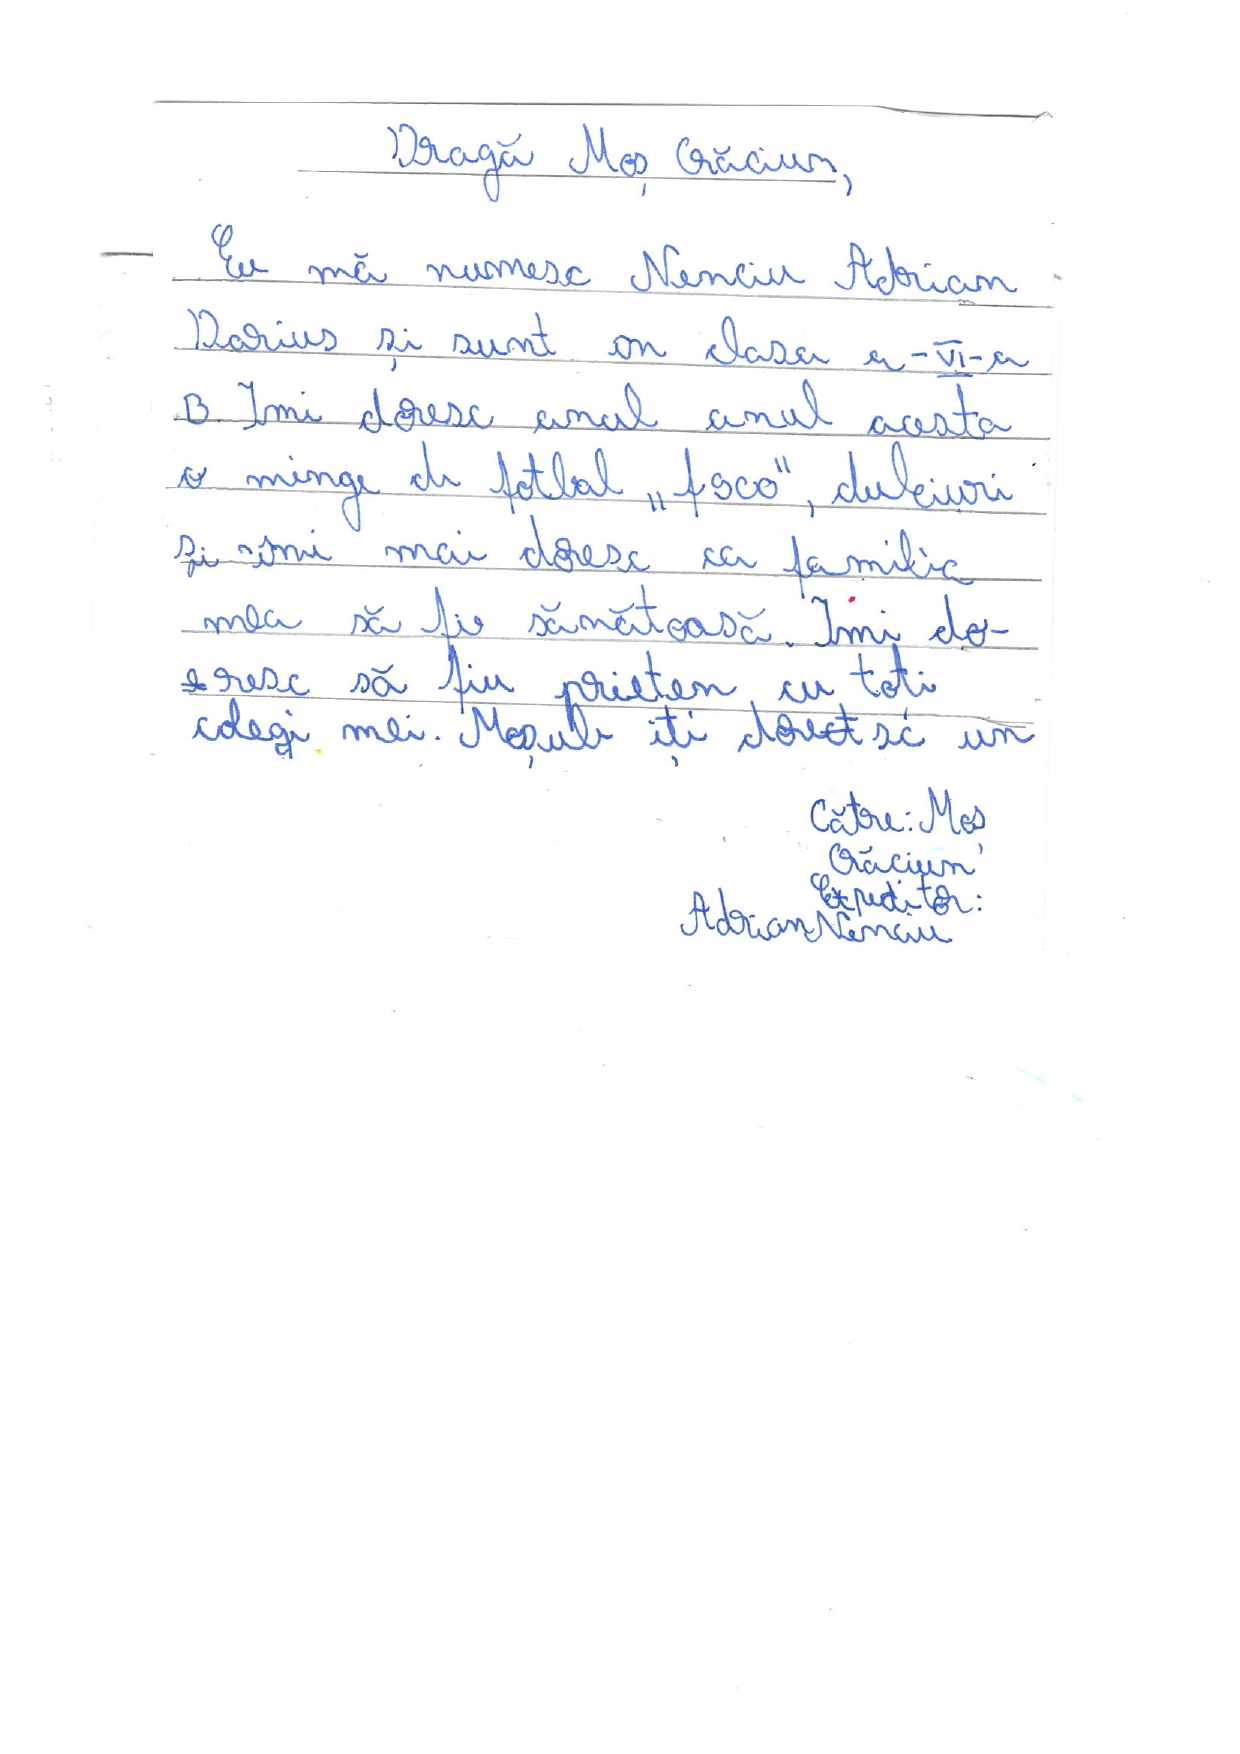 Dragă Moș Crăciun,
Eu mă numesc Nenciu Adrian
Darius și sunt on clasa a-VI-a
B Imi doresc anul anul acesta
o minge de fotbal „fsco”, dulciuri
și imi mai doresc ca familia
mea să fie sănătoasă. Imi do-
resc să fiu prieten cu toti
colegi mei. Moșule iți doresc un
Către: Moș
Crăciun
Expeditor:
Adrian Nenciu